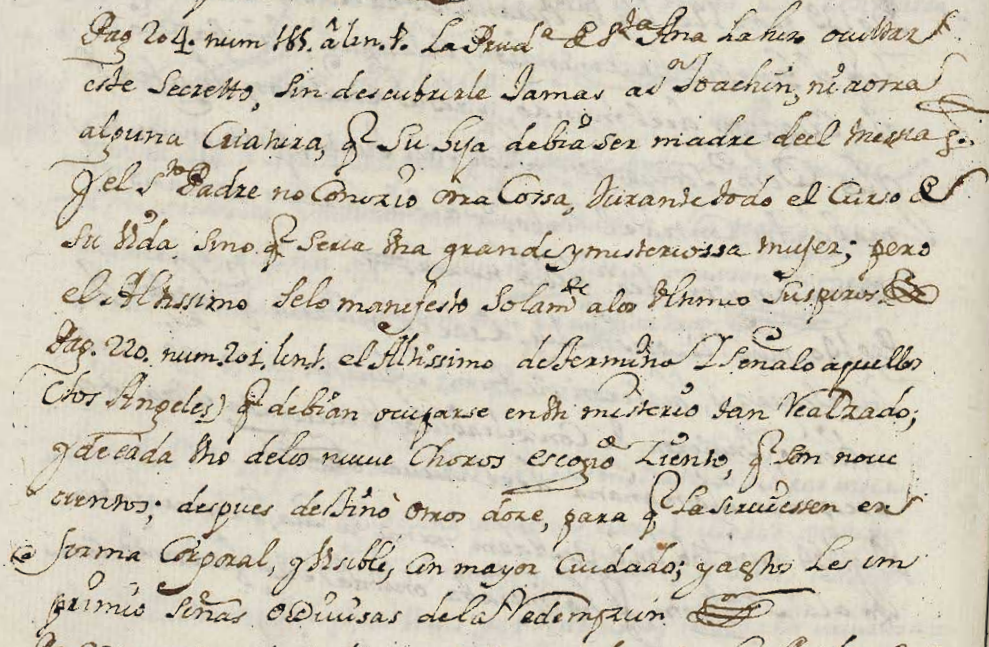 Pag 204. num 188. à lin. 1. La Prud.ª de S.ta Ana la hizo ocultar
este Secretto, sin descubrirle Jamas a S.n Joachin, ni a otra
alguna Criatura, q̃ Su hija debia ser madre deel Messias.
y el S.to Padre no Conozio otra Cossa, durante todo el Curso de
su Vida sino q̃ seria Vna grande y misteriossa muger; pero
el Altissimo se lo manifesto Solam.te a los Vltimos Suspiros.
Pag. 220. num. 201. lin. 1. el Altissimo determinò y Señalo aquellos
(los Angeles) q̃ debian ocuparse en Vn misterio tan Realzado;
y de cada Vno de los nueve Choros escogiò Ziento, q̃ son nove
cientos; despues destinò otros doze, para q̃ La sirviessen en
forma Corporal, y Visible, con mayor Cuidado; y a estos les im
primio Señas o Divisas de la Redempzion